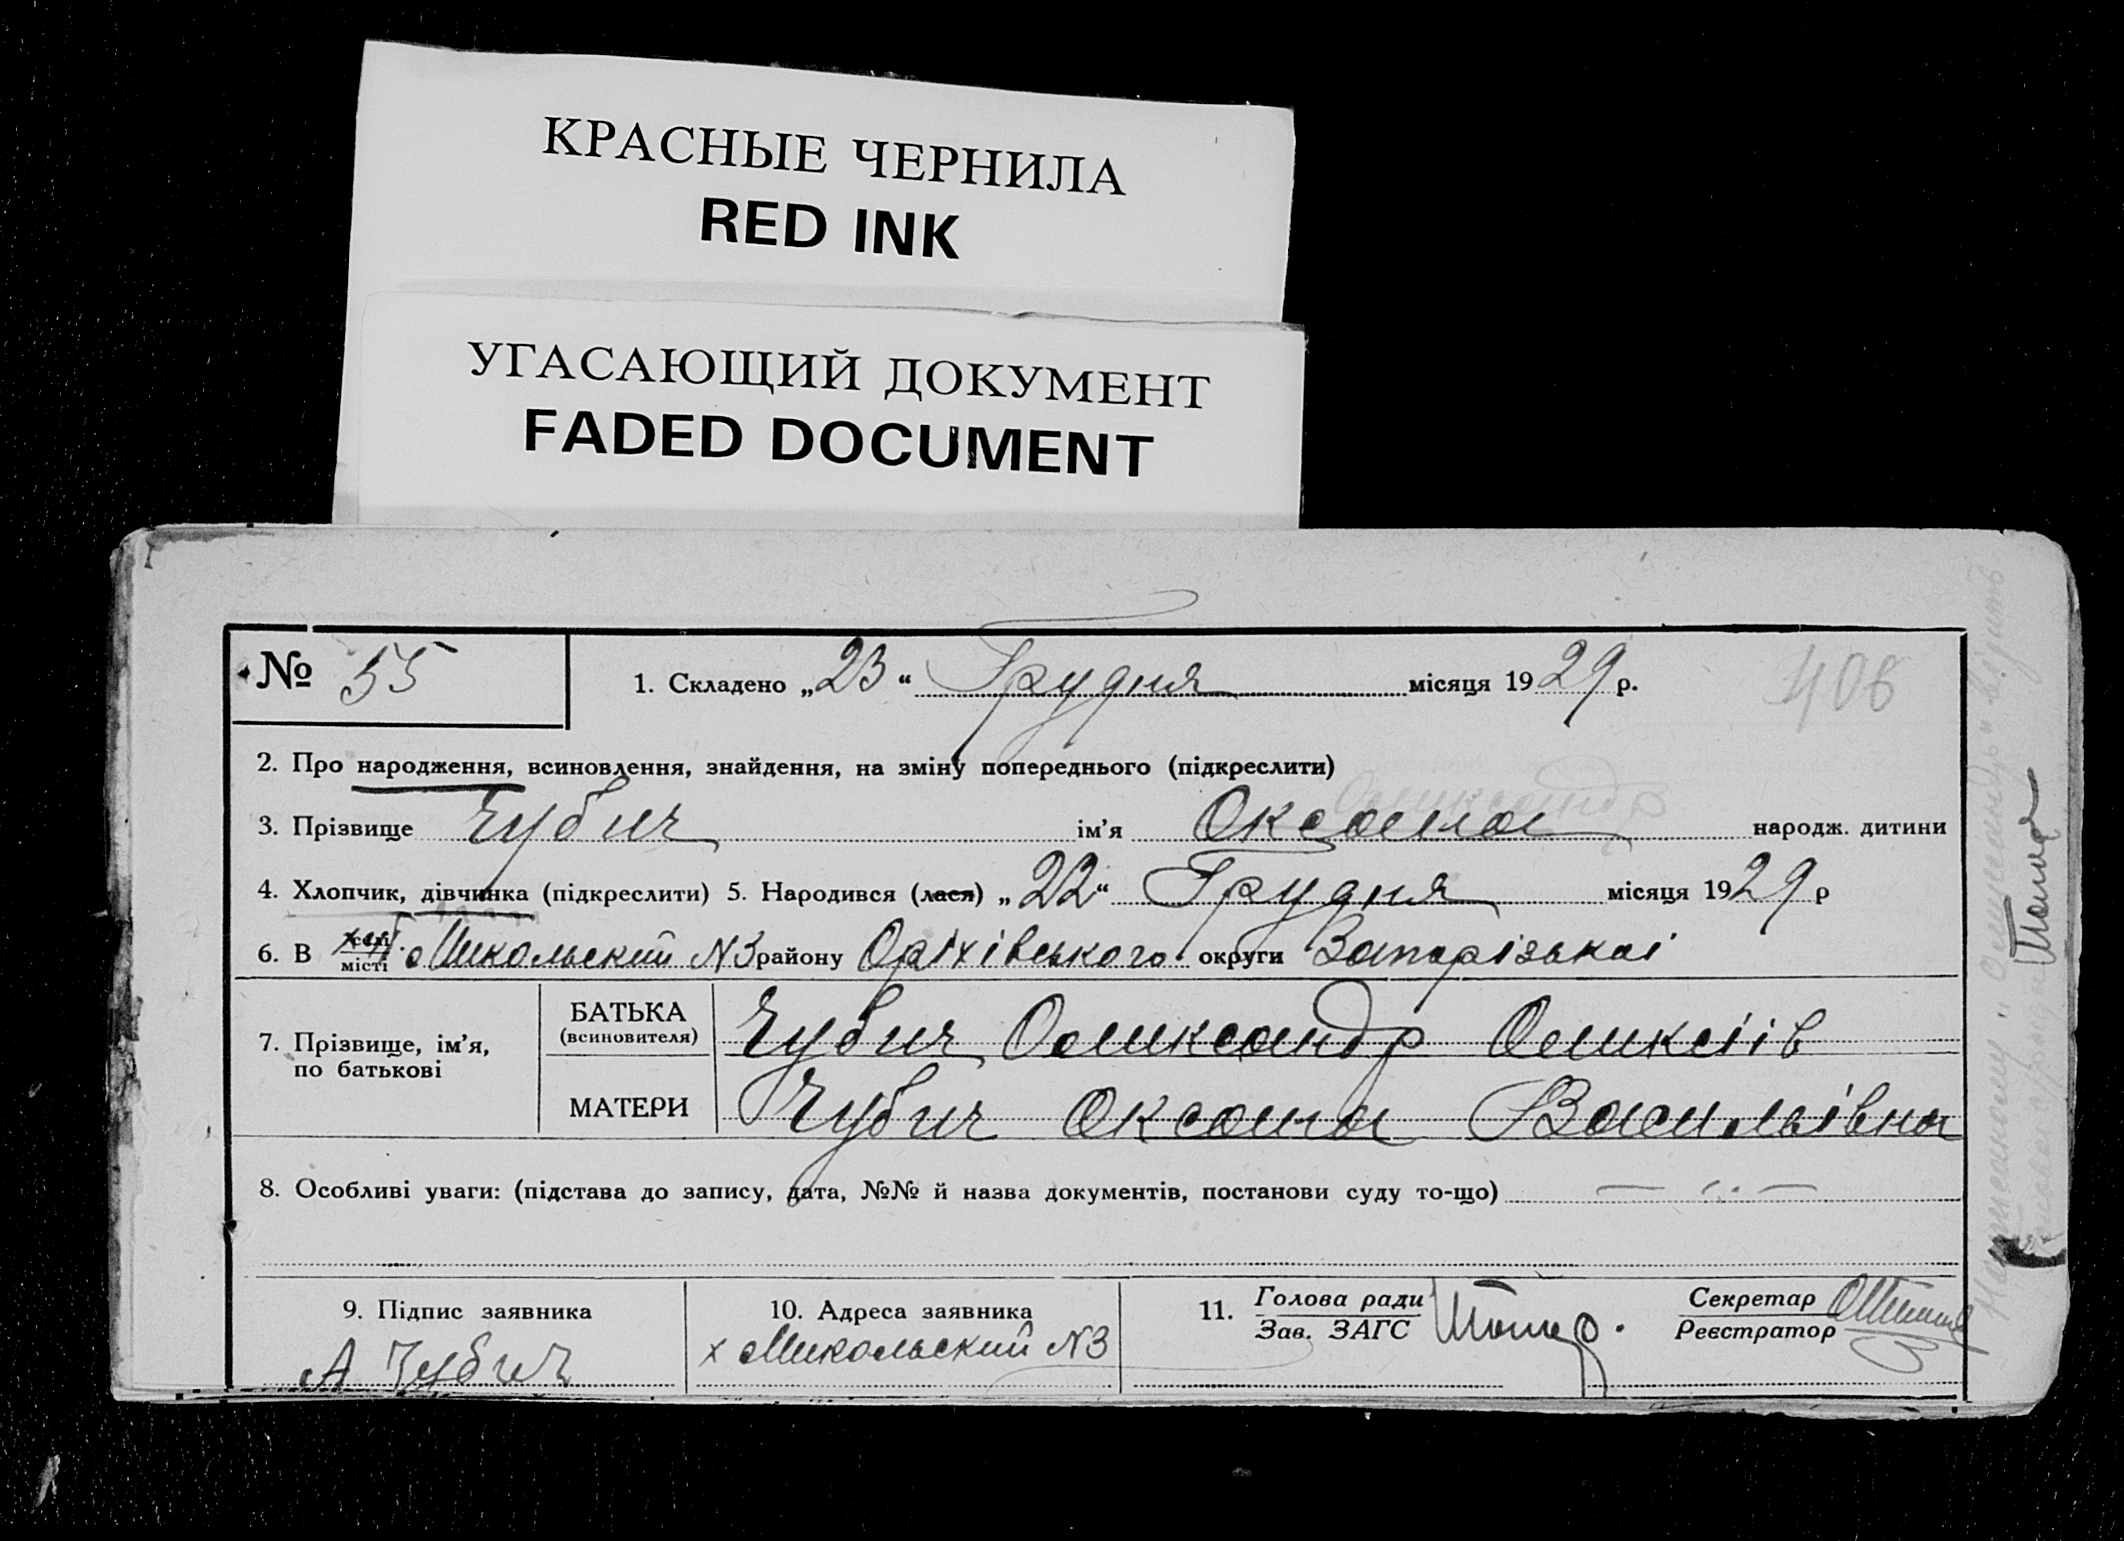 КРАСНЫЕ ЧЕРНИЛА
RED INK
УГАСАЮЩИЙ ДОКУМЕНТ
FADED DOCUMENT
№ 55
1. Складено „23“ Грудня місяця 1929 р.
406
2. Про народження, всиновлення, знайдення, на зміну попереднього (підкреслити)
Олександр
3. Прізвище Чубич ім'я Оксана народж. дитини
4. Хлопчик, дівчинка (підкреслити) 5. Народився (лася) „22“ Грудня місяця 1929 р
6. В селі місті Микольский N3 району Оріхівського округи Запорізькаі
7. Прізвище, ім'я, по батькові
БАТЬКА (всиновителя) Чубич Олександр Олексіів
МАТЕРИ Чубич Оксана Васильівна
8. Особливі уваги: (підстава до запису, дата, №№ й назва документів, постанови суду то-що)
9. Підпис заявника
А Чубич
10. Адреса заявника
х Микольский N3
11. Голова ради
Зав. ЗАГС
Секретар
Реєстратор
Написаному „Олександр“ вірить